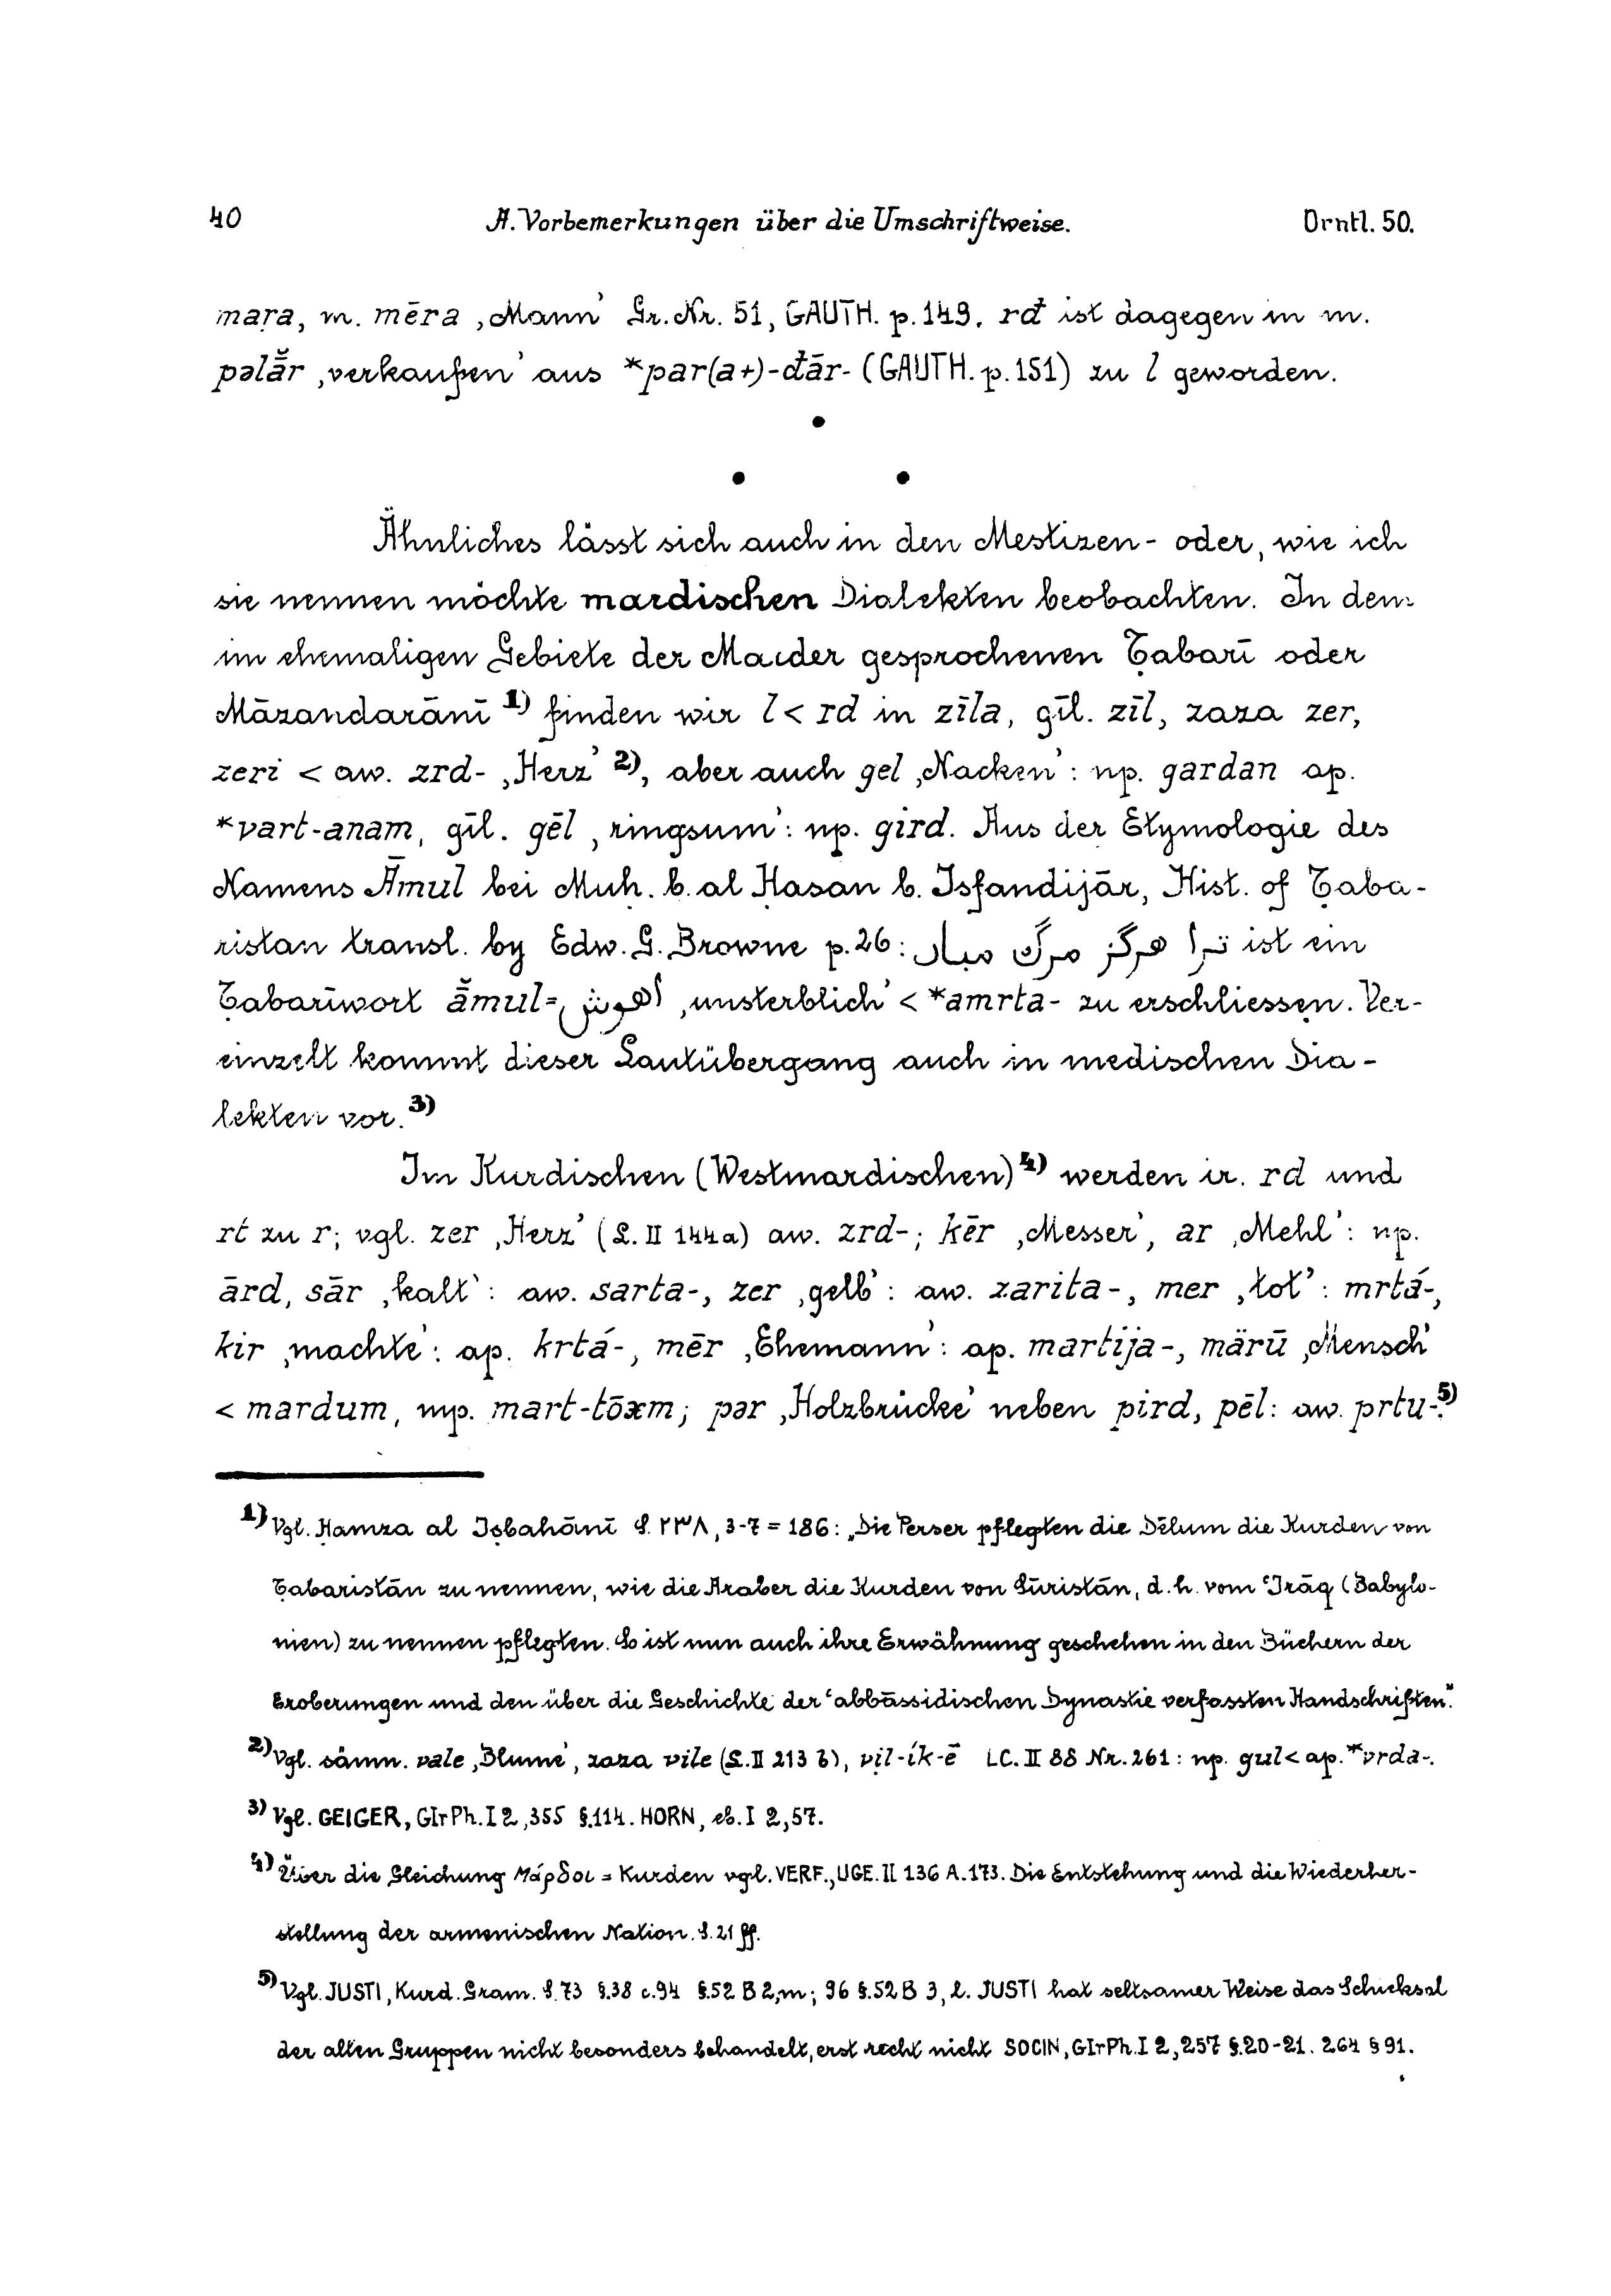 40 A. Vorbemerkungen über die Umschriftweise. Orntl. 50.
maṛa, m. mēra ‚Mann‘ Gr. Nr. 51, GAUTH. p. 149. rđ ist dagegen in m.
pəlā̆r ‚verkaufen‘ aus *par(a+)-đār- (GAUTH. p. 151) zu l geworden.
Ähnliches lässt sich auch in den Mestizen- oder, wie ich
sie nennen möchte mardischen Dialekten beobachten. In dem
im ehemaligen Gebiete der Marder gesprochenen Ṭabarī oder
Māzandarānī 1) finden wir l < rd in zīla, gīl. zīl, zaza zer,
zeri < aw. zrd- ‚Herz‘ 2), aber auch gel ‚Nacken‘ : np. gardan ap.
*vart-anam, gīl. gēl ‚ringsum‘ : np. gird. Aus der Etymologie des
Namens Āmul bei Muḥ. b. al Ḥasan b. Isfandijār, Hist. of Ṭaba-
ristan transl. by Edw. G. Browne p. 26: ترا هرگز مرگ مباد ist ein
Ṭabarīwort ā̆mul = اهوش ‚unsterblich‘ < *amrta- zu erschliessen. Ver-
einzelt kommt dieser Lautübergang auch in medischen Dia-
lekten vor. 3)
Im Kurdischen (Westmardischen) 4) werden ir. rd und
rt zu r; vgl. zer ‚Herz‘ (L. II 144a) aw. zrd-; kēr ‚Messer‘, ar ‚Mehl‘ : np.
ārd, sār ‚kalt‘ : aw. sarta-, zer ‚gelb‘ : aw. zarita-, mer ‚tot‘ : mrtá-,
kir ‚machte‘ : ap. krtá-, mēr ‚Ehemann‘ : ap. martija-, märū ‚Mensch‘
< mardum, mp. mart-tōxm; pər ‚Holzbrücke‘ neben pird, pēl : aw. prtu-. 5)
1) Vgl. Ḥamza al Iṣbahānī S. ٢٣٨, 3-7 = 186: „Die Perser pflegten die Dēlum die Kurden von
Ṭabaristān zu nennen, wie die Araber die Kurden von Sūristān, d.h. vom ʿIrāq (Babylo-
nien) zu nennen pflegten. So ist nun auch ihre Erwähnung geschehen in den Büchern der
Eroberungen und den über die Geschichte der ʿabbāssidischen Dynastie verfassten Handschriften.“
2) Vgl. sämn. vale ‚Blume‘, zaza vile (L. II 213 b), vịl-ík-ē LC. II 88 Nr. 261 : np. gul < ap. *vrda-.
3) Vgl. GEIGER, GIrPh. I 2, 355 §. 114. HORN, eb. I 2, 57.
4) Über die Gleichung Μάρδοι = Kurden vgl. VERF., UGE. II 136 A. 173. Die Entstehung und die Wiederher-
stellung der armenischen Nation. S. 21 ff.
5) Vgl. JUSTI, Kurd. Gram. S. 73 §. 38 c. 94 §. 52 B 2, m; 96 §. 52 B 3, l. JUSTI hat seltsamer Weise das Schicksal
der alten Gruppen nicht besonders behandelt, erst recht nicht SOCIN, GIrPh. I 2, 257 §. 20-21. 264 § 91.